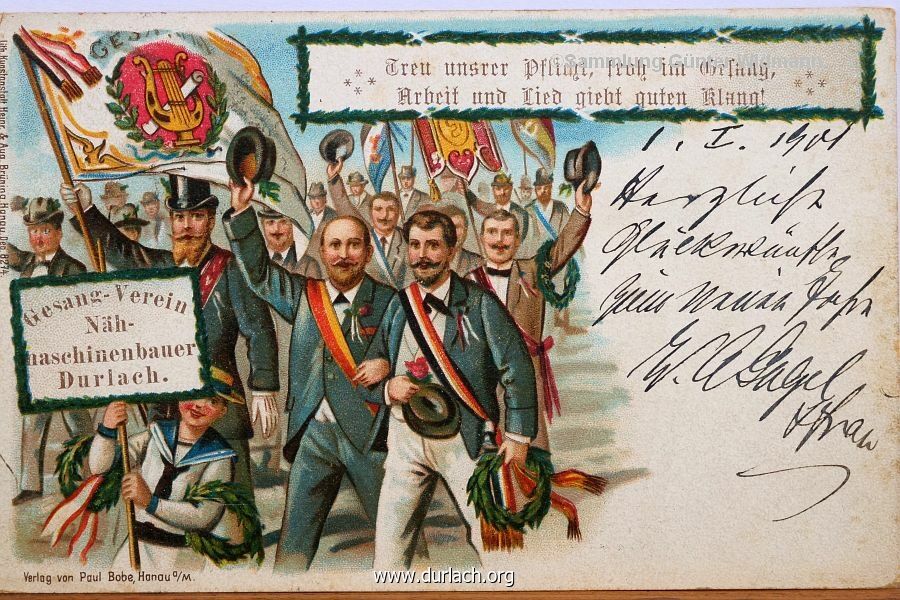 GESANG
Treu unsrer Pflicht, froh im Gesang,
Arbeit und Lied giebt guten Klang!
©Sammlung Günter Widmann
1. I. 1901
Herzliche
Glückwünsche
zum neuen Jahr
W. A. Gagel
& Frau
Gesang-Verein
Näh-
maschinenbauer
Durlach.
Lith. Kunstanstalt Heinr. & Aug. Brüning, Hanau. Dep. 8274.
Verlag von Paul Bobe, Hanau a/M.
www.durlach.org